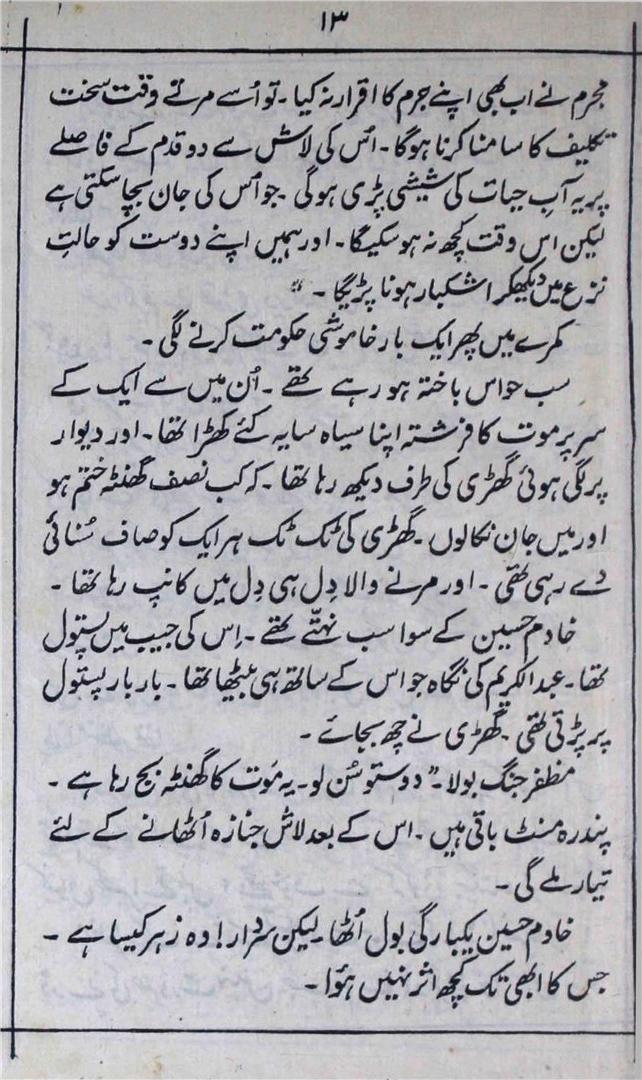 ۱۳
مجرم نے اب بھی اپنے جرم کا اقرار نہ کیا۔ تو اُسے مرتے وقت سخت
تکلیف کا سامنا کرنا ہوگا۔ اُس کی لاش سے دو قدم کے فاصلے
پر یہ آبِ حیات کی شیشی پڑی ہوگی۔ جو اُس کی جان بچا سکتی ہے
لیکن اس وقت کچھ نہ ہو سکیگا۔ اور ہمیں اپنے دوست کو حالتِ
نزع میں دیکھکر اشکبار ہونا پڑیگا۔"
کمرے میں پھر ایک بار خاموشی حکومت کرنے لگی۔
سب حواس باختہ ہو رہے تھے۔ اُن میں سے ایک کے
سر پر موت کا فرشتہ اپنا سیاہ سایہ کئے کھڑا تھا۔ اور دیوار
پر لگی ہوئی گھڑی کی طرف دیکھ رہا تھا۔ کہ کب نصف گھنٹہ ختم ہو
اور میں جان نکالوں۔ گھڑی کی ٹک ٹک ہر ایک کو صاف سُنائی
دے رہی تھی۔ اور مرنے والا دِل ہی دِل میں کانپ رہا تھا۔
خادم حسین کے سوا سب نہتّے تھے۔ اِس کی جیب میں پستول
تھا۔ عبدالکریم کی نگاہ جو اس کے ساتھ ہی بیٹھا تھا۔ بار بار پستول
پر پڑتی تھی۔ گھڑی نے چھ بجائے۔
مظفر جنگ بولا۔ "دوستو سُن لو۔ یہ مَوت کا گھنٹہ بج رہا ہے۔
پندرہ منٹ باقی ہیں۔ اس کے بعد لاش جنازہ اُٹھانے کے لئے
تیار ملے گی۔
خادم حسین یکبارگی بول اُٹھا۔ لیکن سردار! وہ زہر کیسا ہے۔
جس کا ابھی تک کچھ اثر نہیں ہؤا۔